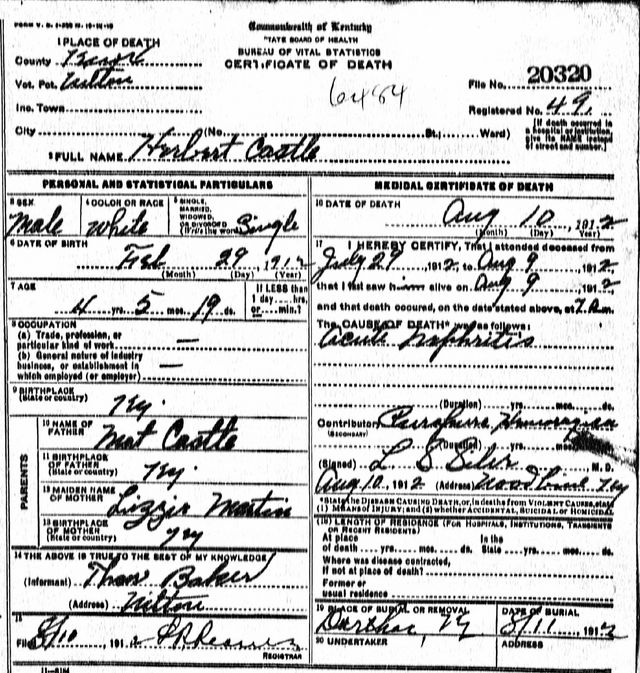 FORM V. S.
Commonwealth of Kentucky
STATE BOARD OF HEALTH
BUREAU OF VITAL STATISTICS
CERTIFICATE OF DEATH
1 PLACE OF DEATH
County
Vot. Pct. Wilton
Inc. Town
City (No. St.; Ward)
6484
File No. 20320
Registered No. 49
[If death occurred in a hospital or institution, give its NAME instead of street and number.]
2 FULL NAME Herbert Castle
PERSONAL AND STATISTICAL PARTICULARS
3 SEX Male
4 COLOR OR RACE White
5 SINGLE, MARRIED, WIDOWED, OR DIVORCED (Write the word) Single
6 DATE OF BIRTH
Feb 29, 1912
(Month) (Day) (Year)
7 AGE
4 yrs. 5 mos. 19 ds.
If LESS than 1 day ... hrs. or ... min.?
8 OCCUPATION
(a) Trade, profession, or particular kind of work —
(b) General nature of industry business, or establishment in which employed (or employer) —
9 BIRTHPLACE
(State or country) Ky.
PARENTS
10 NAME OF FATHER Mat Castle
11 BIRTHPLACE OF FATHER (State or country) Ky.
12 MAIDEN NAME OF MOTHER Lizzie Martin
13 BIRTHPLACE OF MOTHER (State or country) Ky
14 THE ABOVE IS TRUE TO THE BEST OF MY KNOWLEDGE
(Informant) Baker
(Address) Wilton
15
Filed 8/10, 1912
REGISTRAR
MEDICAL CERTIFICATE OF DEATH
16 DATE OF DEATH
Aug 10, 1912
(Month) (Day) (Year)
17 I HEREBY CERTIFY, That I attended deceased from
July 29 1912, to Aug 9 1912,
that I last saw him alive on Aug 9 1912,
and that death occured, on the date stated above, at 7 a.m.
The CAUSE OF DEATH* was as follows:
Acute Nephritis
(Duration) yrs. mos. ds.
Contributory Purpura
(SECONDARY)
(Duration) yrs. mos. ds.
(Signed) L S Siler M. D.
Aug 10, 1912 (Address) Woodbine Ky
*State the DISEASE CAUSING DEATH, or, in deaths from VIOLENT CAUSES, state (1) MEANS OF INJURY; and (2) whether ACCIDENTAL, SUICIDAL or HOMICIDAL
(18) LENGTH OF RESIDENCE (FOR HOSPITALS, INSTITUTIONS, TRANSIENTS OR RECENT RESIDENTS)
At place of death yrs. mos. ds. In the State yrs. mos. ds.
Where was disease contracted,
if not at place of death?
Former or
usual residence
19 PLACE OF BURIAL OR REMOVAL
Ky
DATE OF BURIAL
8/11, 1912
20 UNDERTAKER
ADDRESS
11—3184